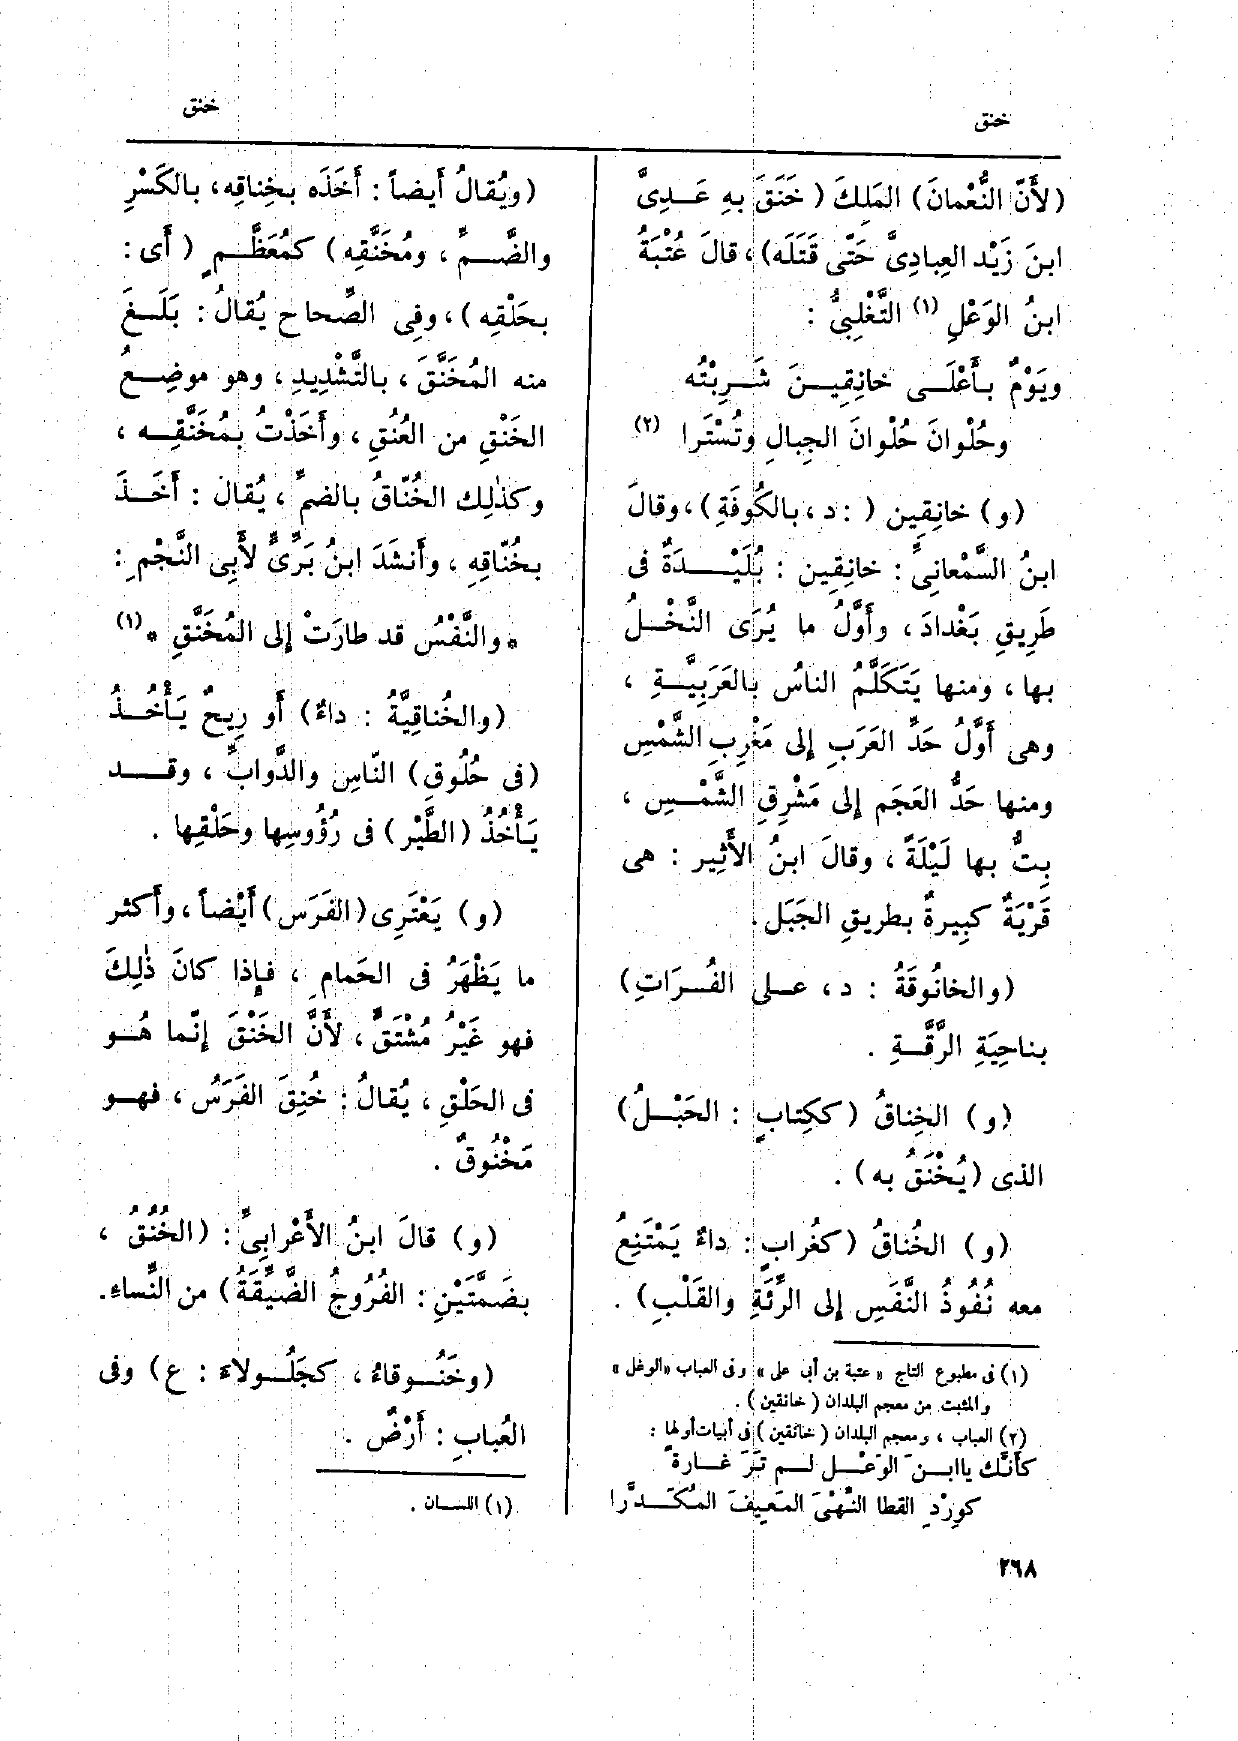 خنق
خنق
(لأَنّ النُّعْمانَ) المَلِكَ (خَنَقَ بهِ عَدِىَّ
ابنَ زَيْد العِبادِىَّ حَتّى قَتَلَه)، قالَ عُتْبَةُ
ابنُ الوَعْلِ (١) التَّغْلِبِىُّ :
ويَوْمٌ بأَعْلَى خانِقِينَ شَرِبْتُه
وحُلْوانَ حُلْوانَ الجِبالِ وتُسْتَرا (٢)
(و) خانِقِين ( : د، بالكُوفَةِ)، وقالَ
ابنُ السَّمْعانِىِّ : خانِقِين : بُلَيْدَةٌ فى
طَرِيقِ بَغْدادَ، وأَوَّلُ ما يُرَى النَّخْلُ
بها، ومنها يَتَكَلَّمُ الناسُ بالعَرَبِيَّةِ ،
وهى أَوَّلُ حَدِّ العَرَبِ إِلى مَغْرِبِ الشَّمْسِ
ومنها حَدُّ العَجَمِ إِلى مَشْرِقِ الشَّمْسِ ،
بِتُّ بها لَيْلَةً ، وقالَ ابنُ الأَثِيرِ : هى
قَرْيَةٌ كبِيرةٌ بطريقِ الجَبَل.
(والخانُوقَةُ : د، على الفُرَاتِ)
بناحِيَةِ الرَّقَّةِ .
(و) الخِناقُ (ككِتابٍ : الحَبْلُ)
الذى (يُخْنَقُ به) .
(و) الخُناقُ (كغُرابٍ : داءٌ يَمْتَنِعُ
معه نُفُوذُ النَّفَسِ إِلى الرِّئَةِ والقَلْبِ) .
(١) فى مطبوع التاج «عتبة بن أبى على» وفى العباب «الوغل»
والمثبت من معجم البلدان (خانقين) .
(٢) العباب ، ومعجم البلدان (خانقين) فى أبيات أولها :
كأنَّك ياابنَ الوَعْلِ لم تَرَ غارةً
كوِرْدِ القطا النِّهْىَ المَعِيفَ المُكَدَّرا
(ويُقالُ أَيضاً : أَخَذَه بخِناقِه، بالكَسْرِ
والضَّمِّ ، ومُخَنَّقِه) كمُعَظَّمٍ (أَى :
بحَلْقِه)، وفى الصّحاحِ يُقالُ : بَلَغَ
منه المُخَنَّقَ ، بالتَّشْدِيدِ، وهو موضِعُ
الخَنْقِ من العُنُقِ ، وأَخَذْتُ بمُخَنَّقِه ،
وكذٰلِك الخُنّاقُ بالضمِّ ، يُقالَ : أَخَذَ
بخُنّاقِهِ ، وأَنشَدَ ابنُ بَرِّىٍّ لأَبِى النَّجْمِ:
* والنَّفْسُ قد طارَتْ إِلى المُخَنَّقِ * (١)
(والخُناقِيَّةُ : داءٌ) أَو رِيحٌ يَأْخُذُ
(فى حُلُوقِ) النّاسِ والدَّوابِّ ، وقد
يَأْخُذُ (الطَّيْر) فى رُؤُوسِها وحَلْقِها .
(و) يَعْتَرِى (الفَرَس) أَيْضاً، وأَكثر
ما يَظْهَرُ فى الحَمامِ ، فإِذا كانَ ذٰلِكَ
فهو غَيْرُ مُشْتَقٍّ، لأَنَّ الخَنْقَ إِنّما هُو
فى الحَلْقِ ، يُقالُ : خُنِقَ الفَرَسُ، فهو
مَخْنُوقٌ .
(و) قالَ ابنُ الأَعْرابِىِّ : (الخُنُقُ ،
بضَمَّتَيْنِ : الفُرُوجُ الضَّيِّقَةُ) من النِّساءِ.
(وخَنُوقاءُ ، كجَلُولاءَ : ع) وفى
العُبابِ : أَرْضٌ .
(١) اللسان .
٢٦٨